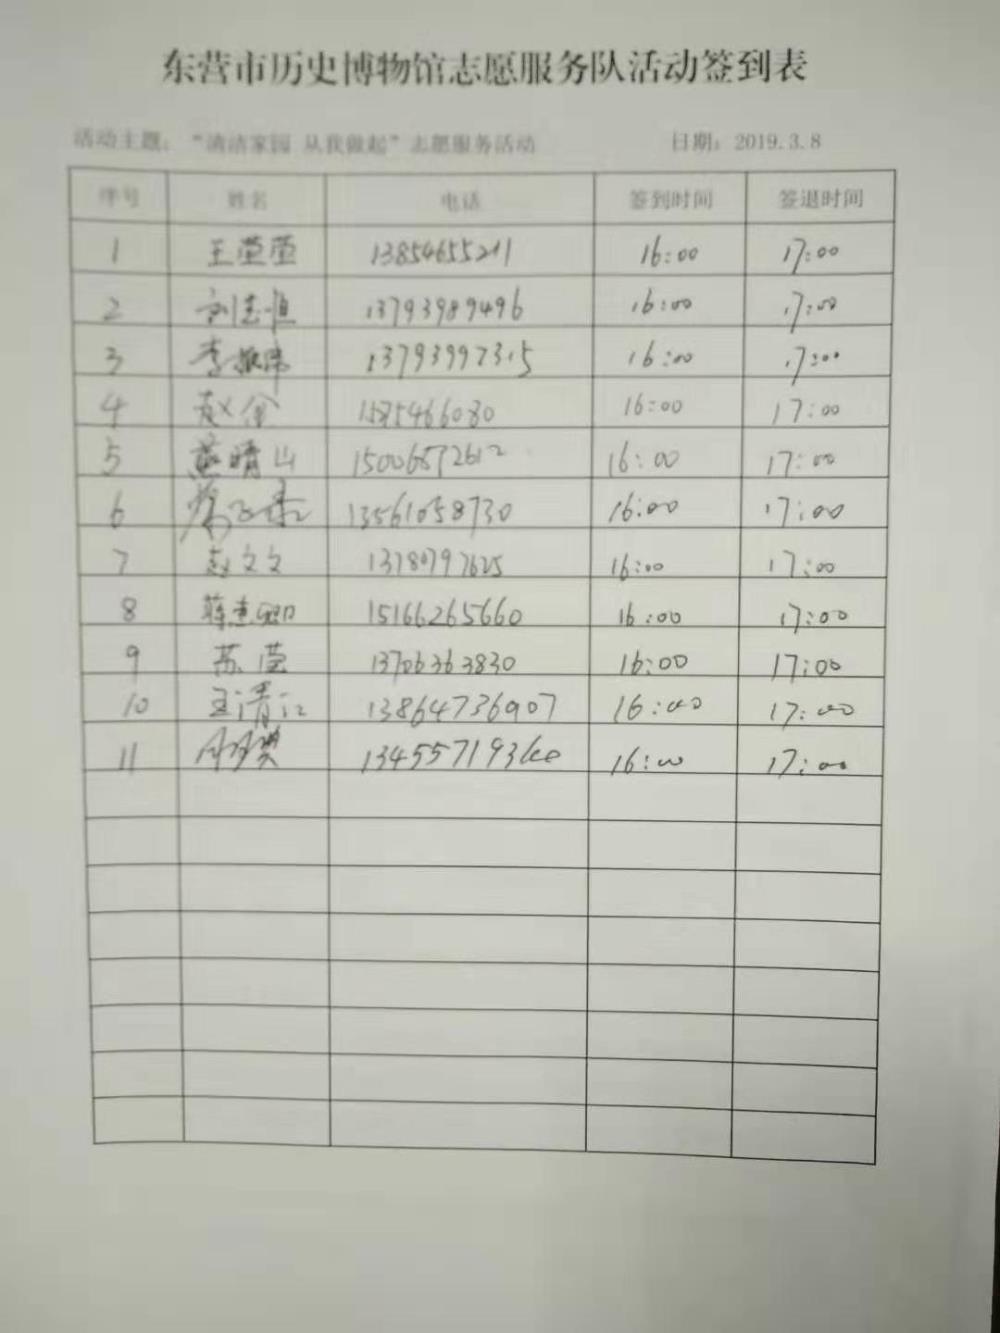 东营市历史博物馆志愿服务队活动签到表
活动主题：“清洁家园 从我做起”志愿服务活动 日期：2019.3.8
序号 姓名 电话 签到时间 签退时间
1 王莹莹 13854655211 16:00 17:00
2 13793989496 16:00 17:00
3 李 13793997315 16:00 17:00
4 赵 16:00 17:00
5 燕晴山 15006872612 16:00 17:00
6 13561058730 16:00 17:00
7 赵文文 16:00 17:00
8 15166265660 16:00 17:00
9 苏莹 13706363830 16:00 17:00
10 王清江 13864736907 16:00 17:00
11 16:00 17:00